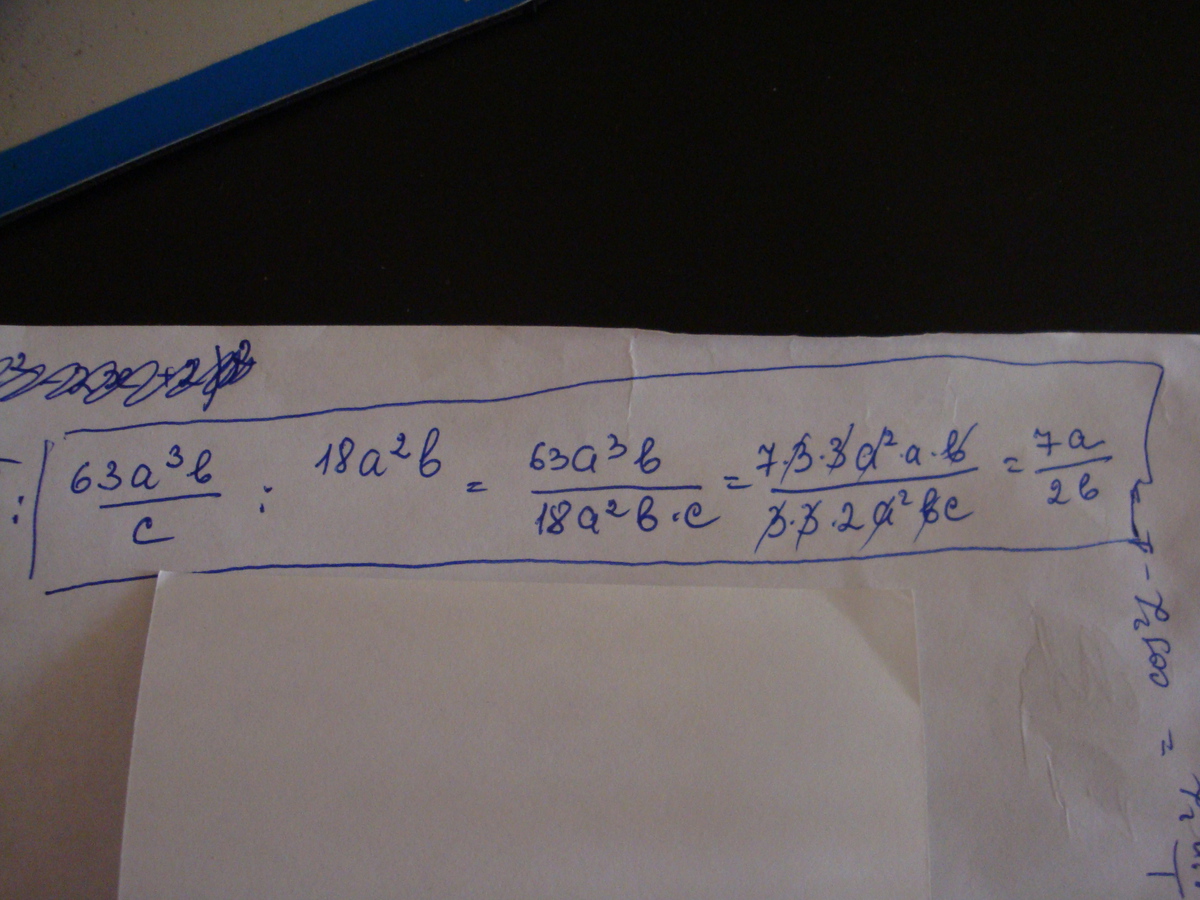 63a³b/c : 18a²b = 63a³b/18a²b·c = 7·3·3a²·a·b/3·3·2a²bc = 7a/2b
- cos²α =